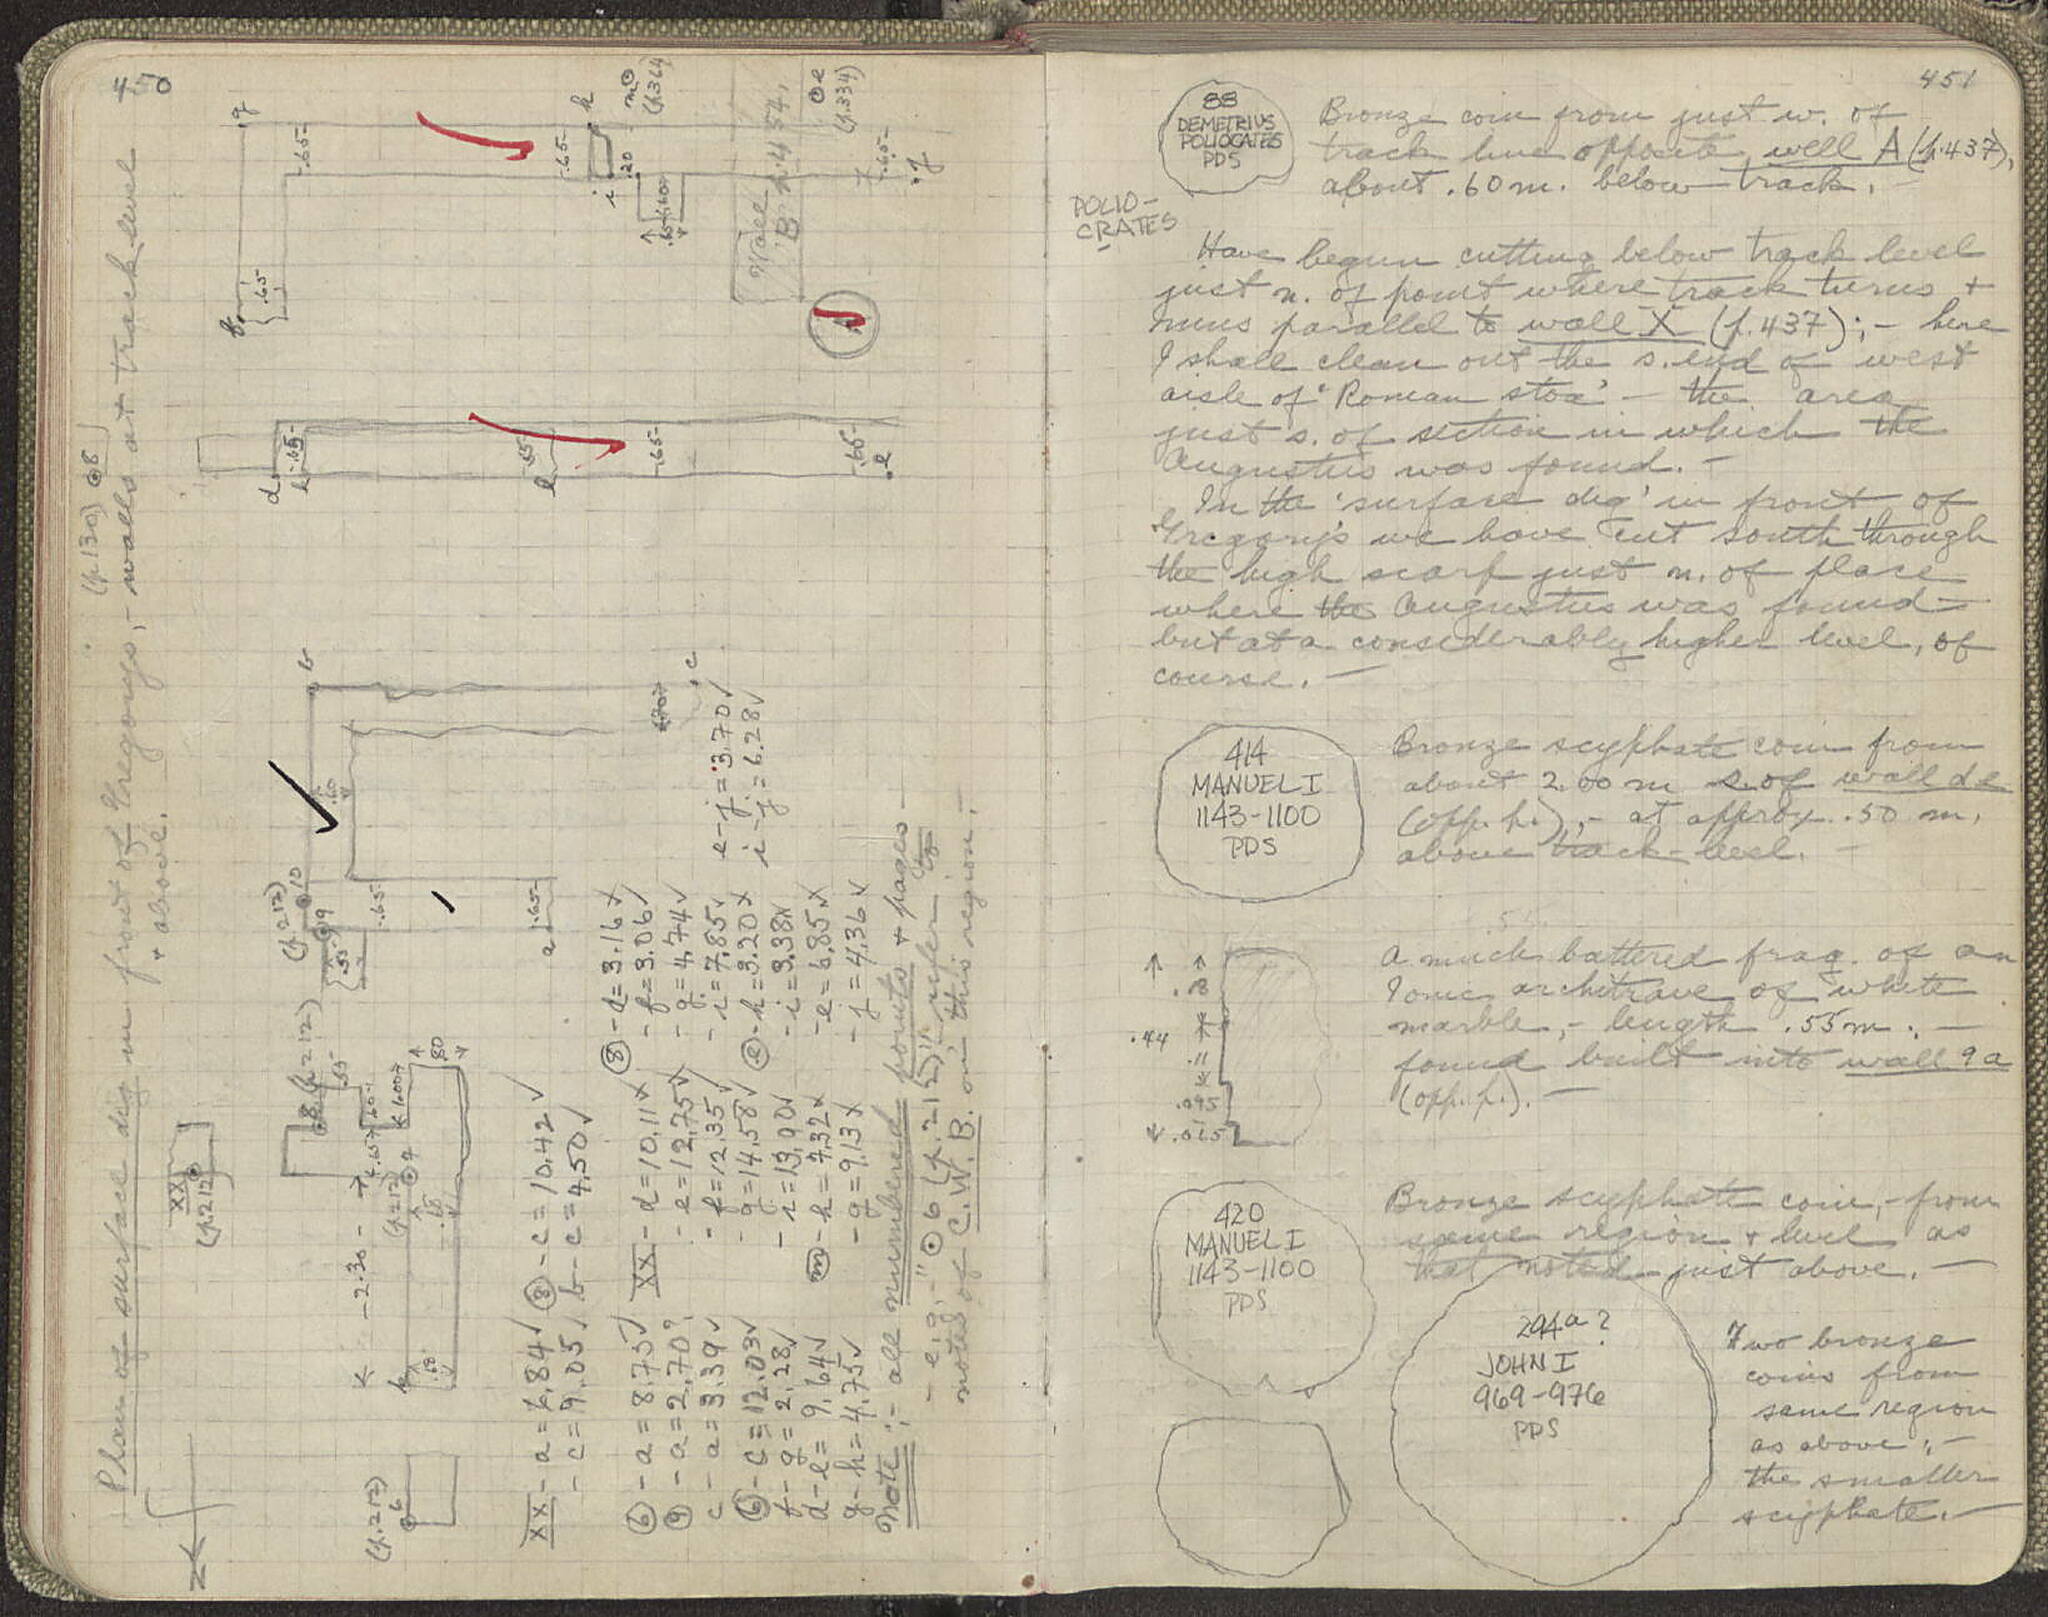 450
(p.130) ⊙8
Plan of surface dig in front of Gregory's,- walls at track level
+ above.
N
XX
(p.212)
(p.212)
6
8 (p.212)
(p.212) 10
9
.55
.55
.60
.65
1.00
.80
2.30
(p.212)
7
k
.18
.18
a
.65
.65
.60
b
c
d
k
.65
.55
l
.65
.65
e
f
.65
g
.65
.65
h
i
.20
m ⊙
(p.364)
Wall
B p.454.
⊙ e
(p.334)
.65
j
A
XX - a = 6.84 ✓
- c = 9.05 ✓
⑧ - c = 10.42 ✓
b - c = 4.50 ✓
⑥ - a = 8.75 ✓
⑨ - a = 2.70 ?
c - a = 3.39 ✓
⑥ - c = 12.03 ✓
f - g = 2.28 ✓
d - e = 9.64 ✓
g - h = 4.75 ✓
XX - d = 10.11 X
- e = 12.75 ✓
- f = 12.35 ✓
- g = 14.58 ✓
- i = 13.90 ✓
ⓜ - h = 7.32 X
- g = 9.13 X
⑧ - d = 3.16 X
- f = 3.06 ✓
- g = 4.74 ✓
- i = 7.85 ✓
ⓔ - h = 3.20 X
- i = 3.38 X
- e = 6.85 X
- j = 4.36 ✓
e - j = 3.70 ✓
i - j = 6.28 ✓
Note:- all numbered points + pages -
- e.g.- "⊙ 6 (p.212)" refer to
notes of C.W.B. on this region.-
451
88
DEMETRIUS
POLIOCATES
PDS
POLIO-
CRATES
Bronze coin from just w. of
track line opposite well A (p.437),
about .60 m. below track. -
Have begun cutting below track level
just n. of point where track turns +
runs parallel to wall X (p.437);- here
I shall clean out the s. end of west
aisle of 'Roman stoa' - the area
just s. of section in which the
Augustus was found. -
In the 'surface dig' in front of
Gregory's we have cut south through
the high scarp just n. of place
where the Augustus was found -
but at a considerably higher level, of
course. -
414
MANUEL I
1143-1100
PDS
Bronze scyphate coin from
about 2.00 m s. of wall de
(opp. p.),- at approx. .50 m.
above track-level. -
.18
.44
.11
.095
.015
A much battered frag. of an
Ionic architrave of white
marble,- length .55 m.; -
found built into wall 9a
(opp. p.). -
420
MANUEL I
1143-1100
PDS
Bronze scyphate coin,- from
same region + level as
that noted just above. -
294a?
JOHN I
969-976
PDS
Two bronze
coins from
same region
as above;-
the smaller
scyphate. -